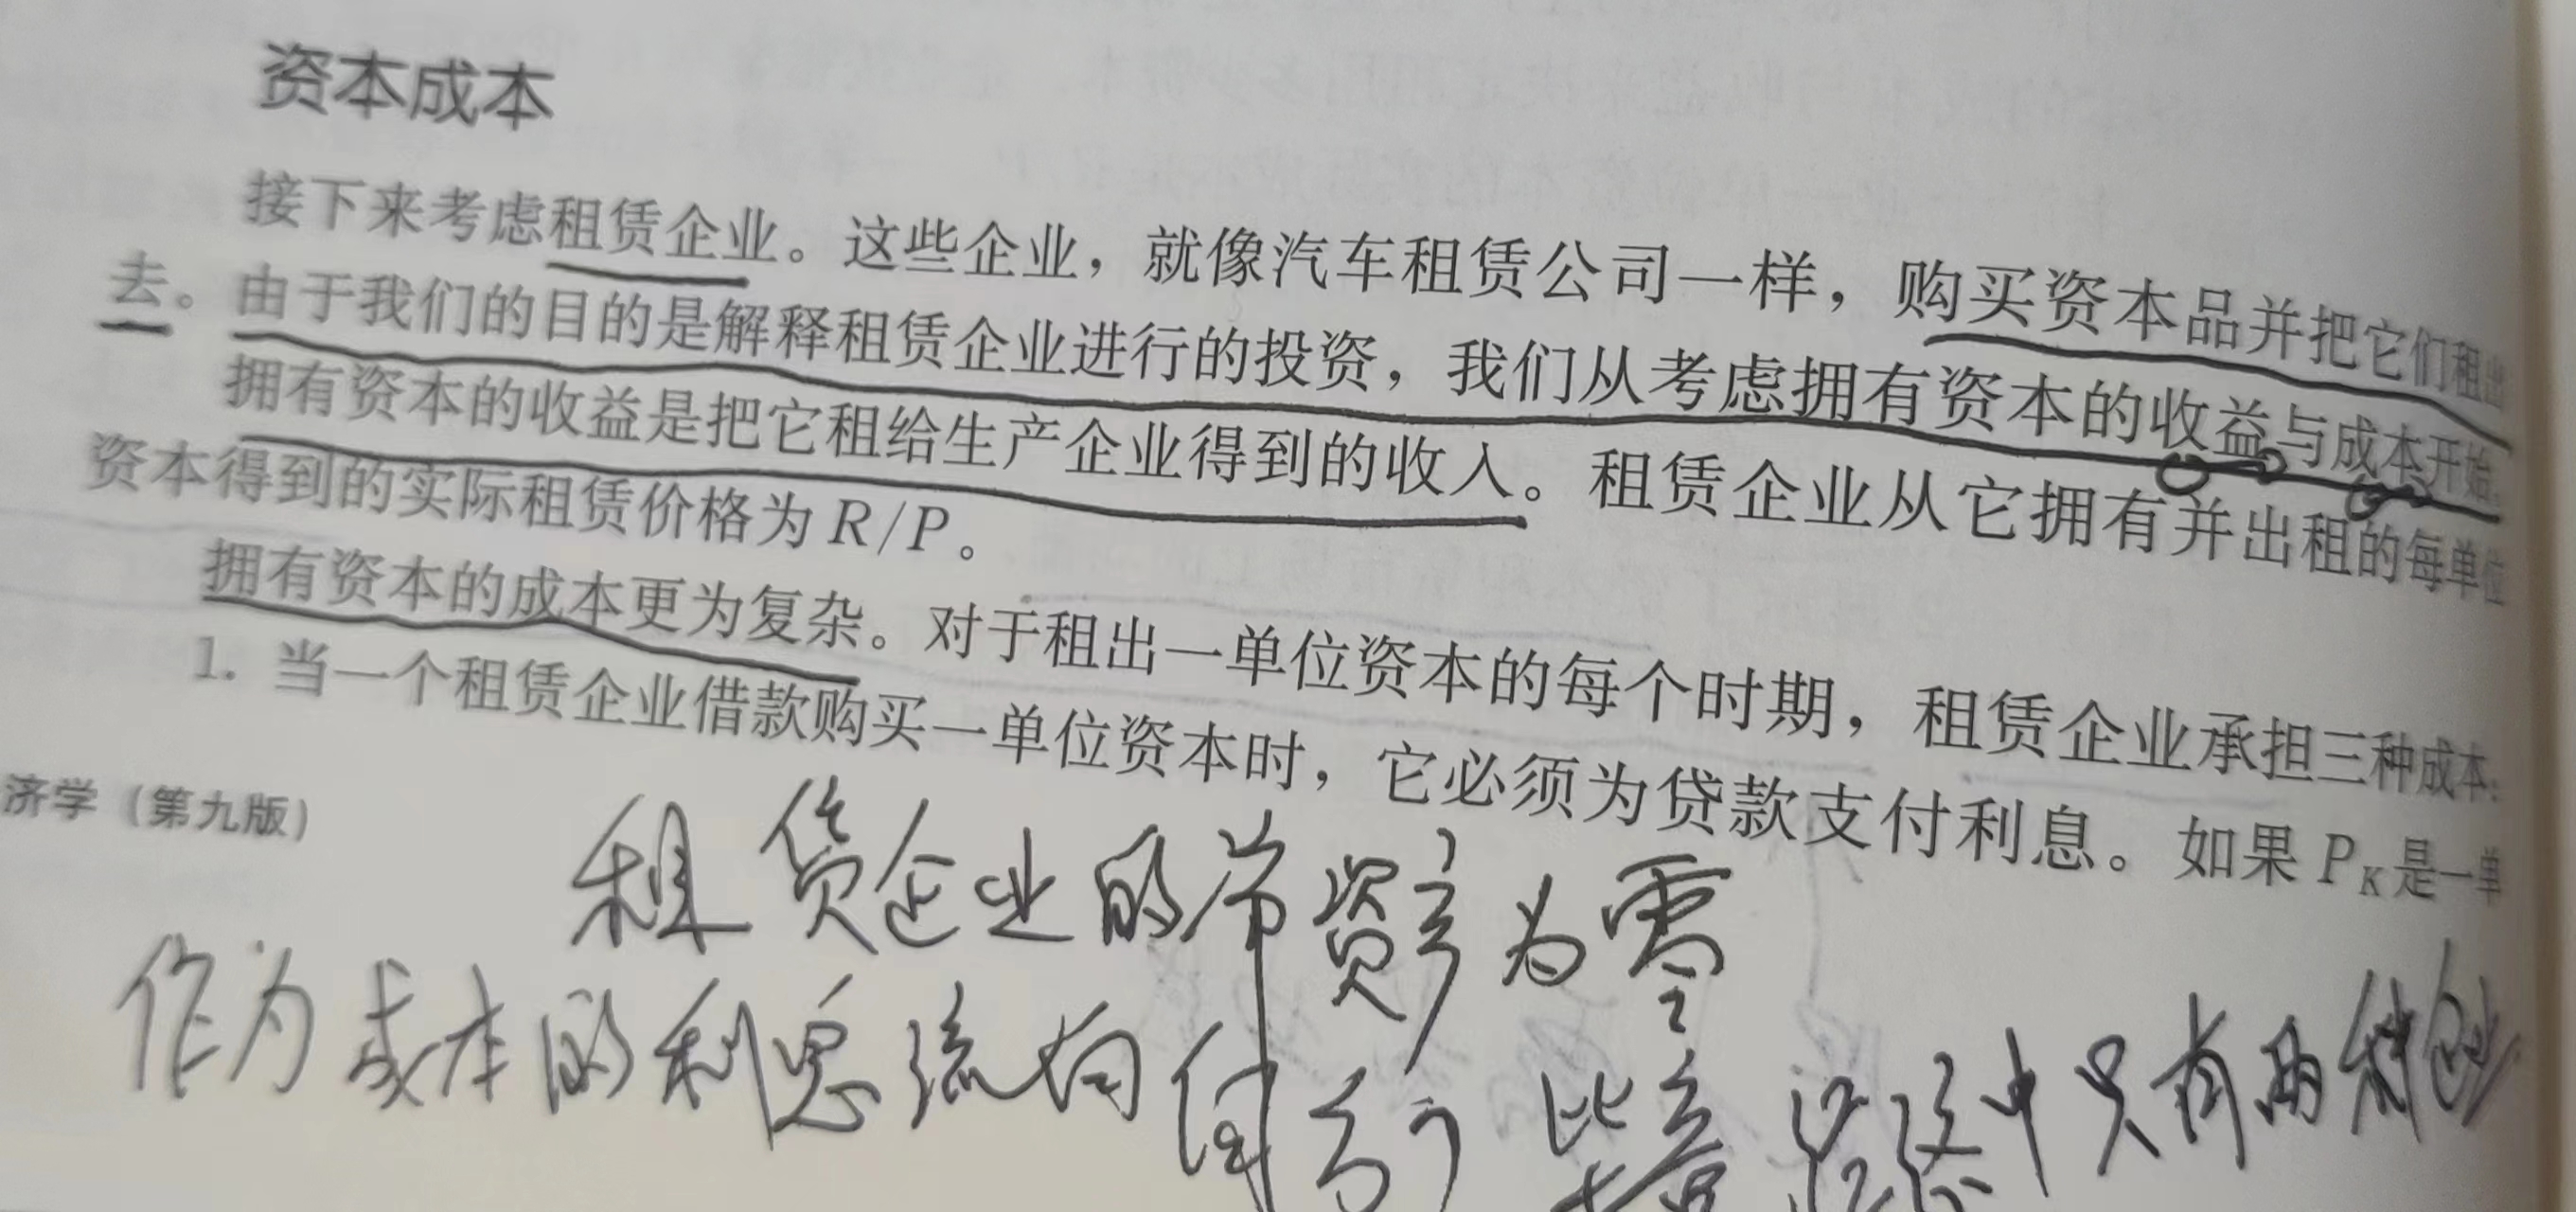 资本成本
接下来考虑租赁企业。这些企业，就像汽车租赁公司一样，购买资本品并把它们租出
去。由于我们的目的是解释租赁企业进行的投资，我们从考虑拥有资本的收益与成本开始。
拥有资本的收益是把它租给生产企业得到的收入。租赁企业从它拥有并出租的每单位
资本得到的实际租赁价格为R/P。
拥有资本的成本更为复杂。对于租出一单位资本的每个时期，租赁企业承担三种成本：
1. 当一个租赁企业借款购买一单位资本时，它必须为贷款支付利息。如果 PK是一单
济学（第九版）
租赁企业的 资产为零
作为成本的利息流向 中只有两种企业